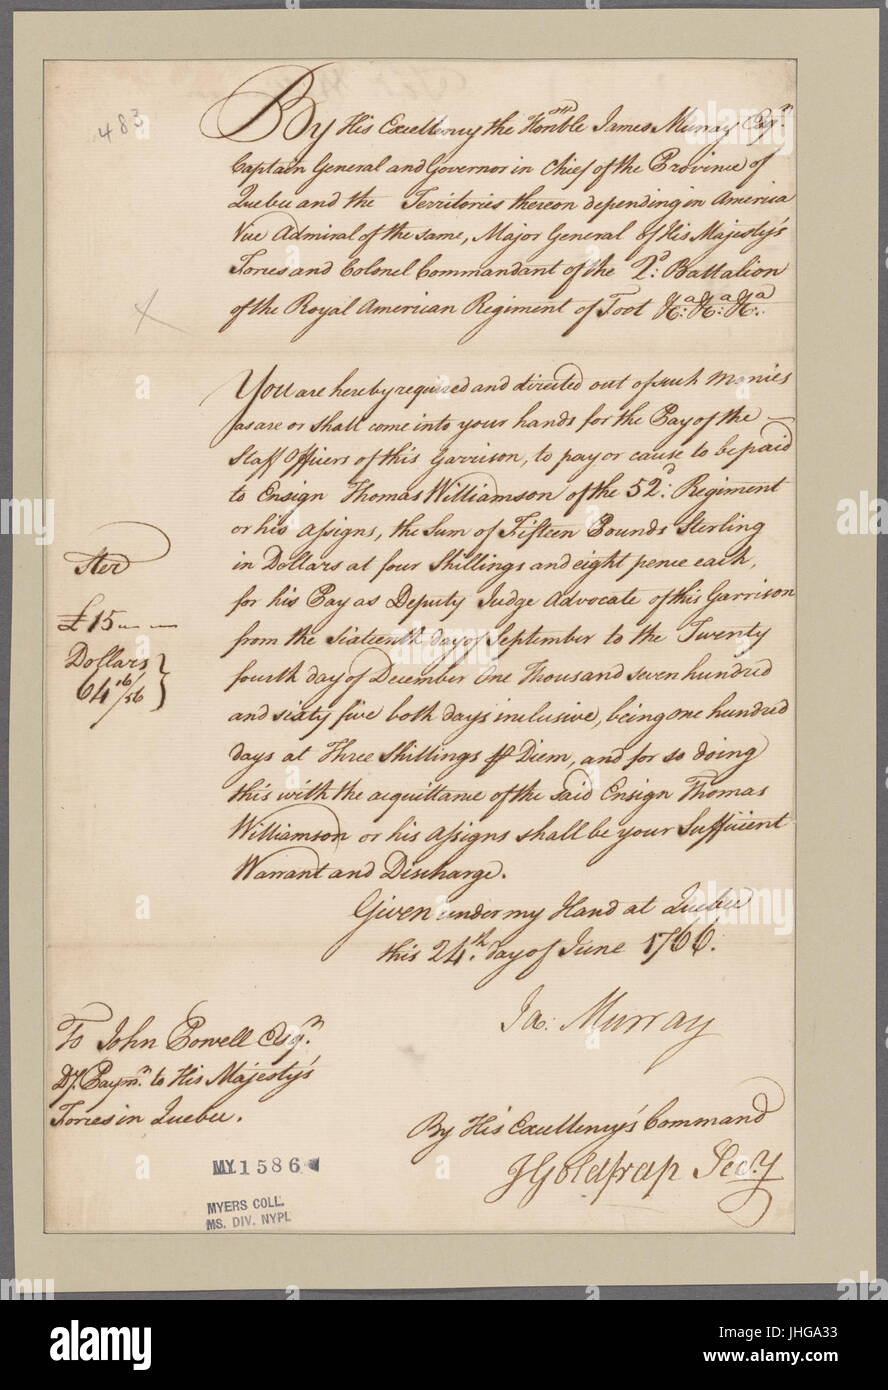 483
By His Excellency the Honble. James Murray Esqr.
Captain General and Governor in Chief of the Province of
Quebec and the Territories thereon depending in America
Vice Admiral of the same, Major General of His Majesty's
Forces and Colonel Commandant of the 2d: Battalion
of the Royal American Regiment of Foot &a: &a: &a:
You are hereby required and directed out of such Monies
as are or shall come into your hands for the Pay of the
Staff Officers of this Garrison, to pay or cause to be paid
to Ensign Thomas Williamson of the 52d: Regiment
or his Assigns, the Sum of Fifteen Pounds Sterling
in Dollars at four Shillings and eight pence each,
for his Pay as Deputy Judge Advocate of this Garrison
from the Sixteenth day of September to the Twenty
fourth day of December One Thousand seven hundred
and sixty five both days inclusive, being one hundred
days at Three Shillings ⅌ Diem, and for so doing
this with the acquittance of the said Ensign Thomas
Williamson or his Assigns shall be your Sufficient
Warrant and Discharge.
Ster
£15 " — —
Dollars
64 16/56
Given under my Hand at Quebec
this 24th. day of June 1766.
Ja: Murray
To John Powell Esqr.
Dy. Paymr. to His Majesty's
Forces in Quebec.
By His Excellency's Command
JGoldfrap Secy
MY 1586
MYERS COLL.
MS. DIV. NYPL
alamy
alamy stock photo
JHGA33
www.alamy.com